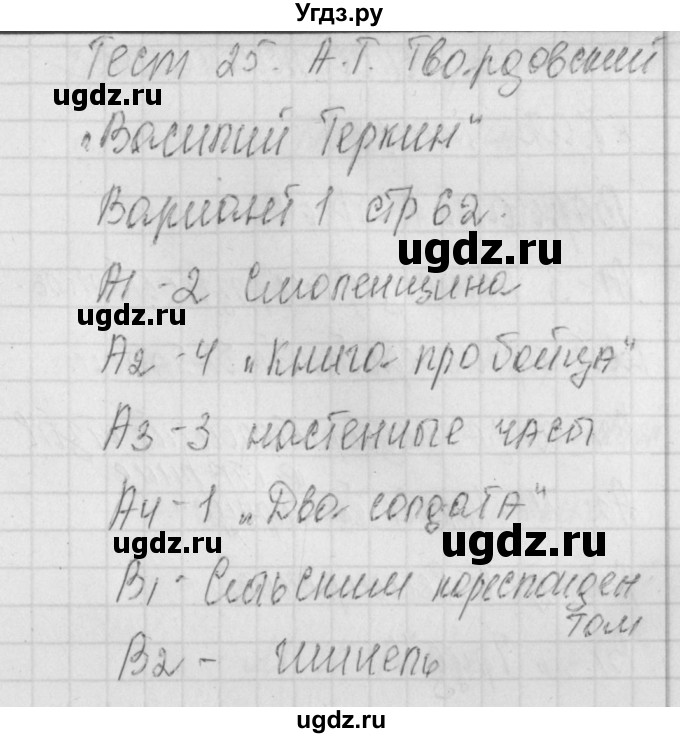 Угдз.ру
Тест 25. А.Т. Твардовский
ugdz.ru
"Василий Теркин"
Вариант 1 стр 62.
ugdz.ru
А1 - 2 Смоленщина
ugdz.ru
А2 - 4 "Книга про бойца"
А3 - 3 настенные часы
А4 - 1 "Два солдата"
ugdz.ru ugdz.ru
В1 - Сельским кореспонден
том
В2 - шинель
ugdz.ru
ugdz.ru